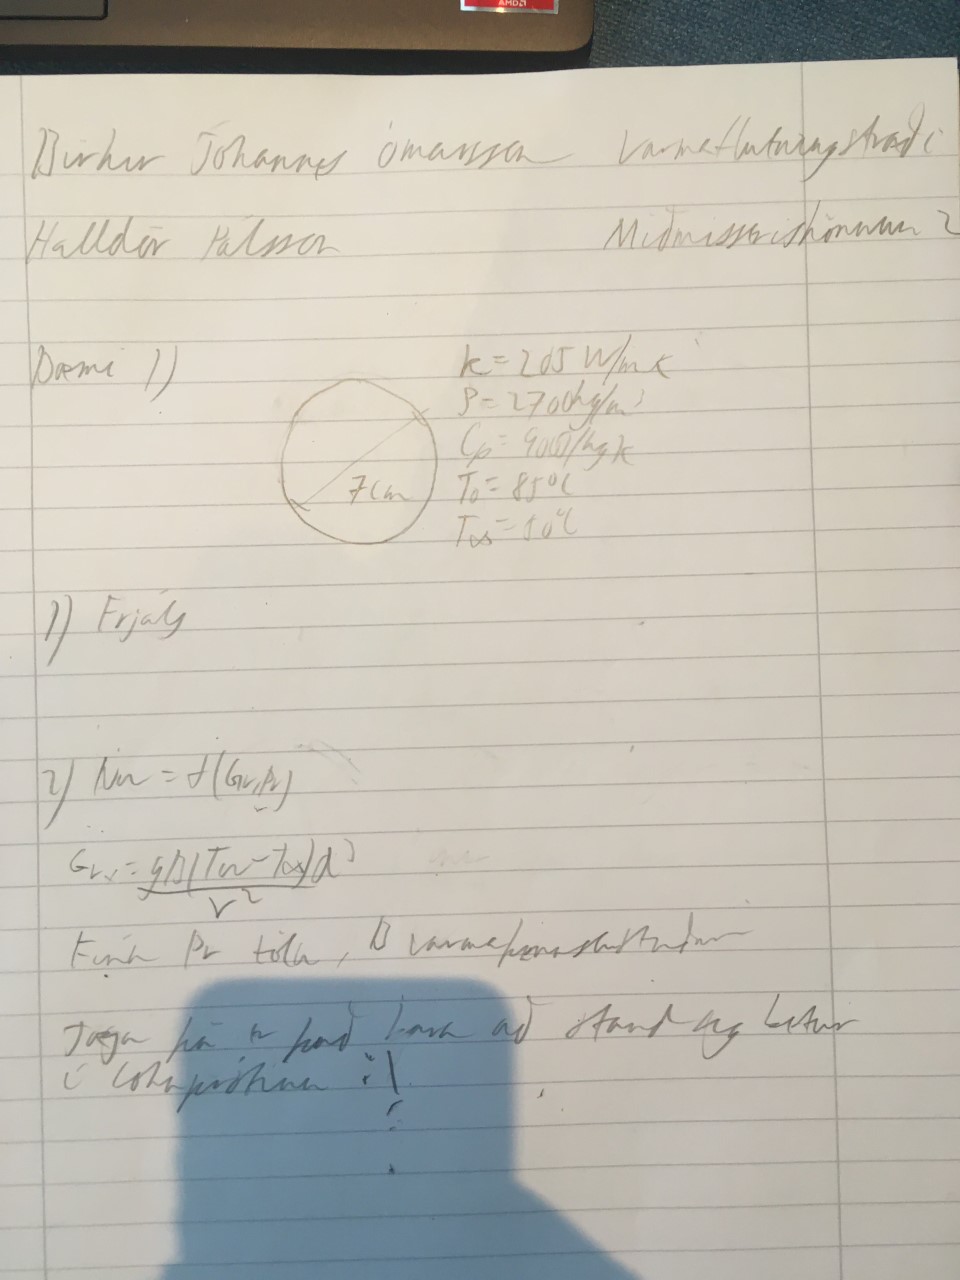 AMD
Birkir Jóhannes Ómarsson Varmaflutningsfræði
Halldór Pálsson Miðmisseriskönnun 2
Dæmi 1)
k = 205 W/mK
ρ = 2700kg/m³
Cp = 900J/kgK
7cm T₀ = 85°C
T∞ = 10°C
1) Frjáls
2) Nu = f(Gr, Pr)
Gr = gβ(Tw - T∞)d³
ν²
Finn Pr tölu, β
Jæja þá er það bara að standa sig betur
í lokaprófinu :\